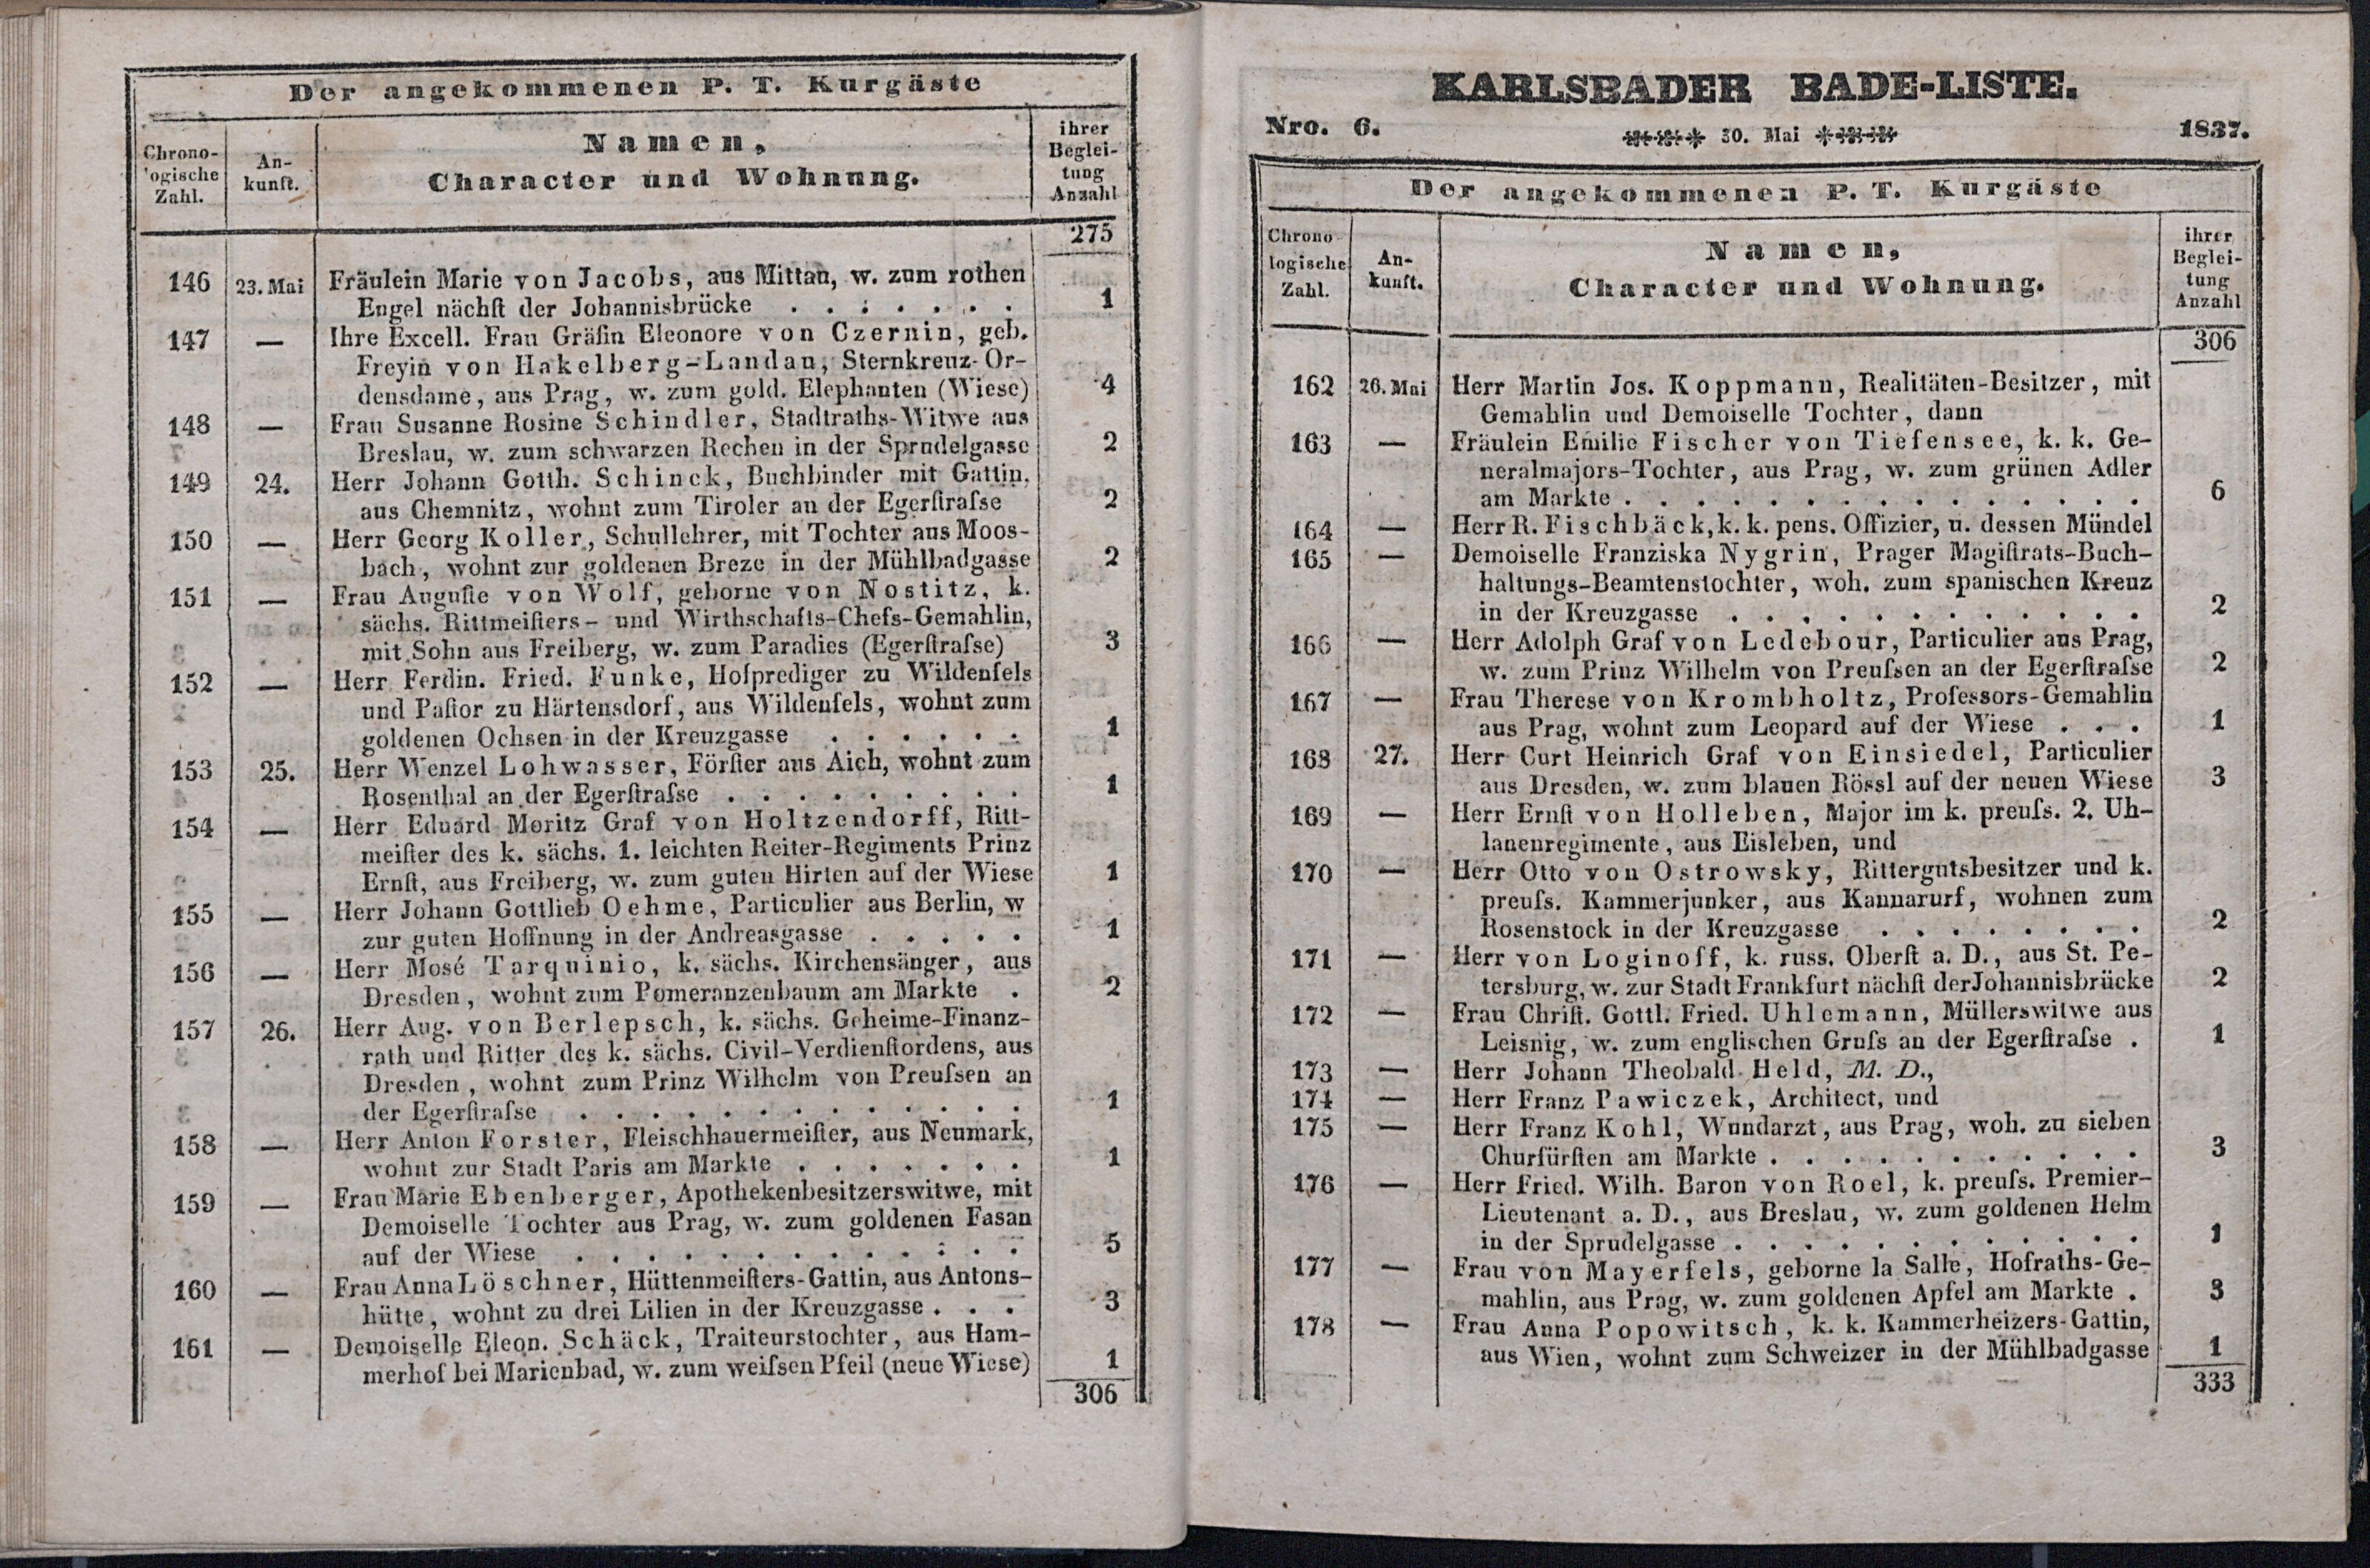 Der angekommenen P. T. Kurgäste
Chronologische Zahl.
Ankunft.
Namen,
Character und Wohnung.
ihrer Begleitung Anzahl
275
146 23. Mai Fräulein Marie von Jacobs, aus Mittau, w. zum rothen
Engel nächst der Johannisbrücke . . . . . . . 1
147 — Ihre Excell. Frau Gräfin Eleonore von Czernin, geb.
Freyin von Hakelberg-Landau, Sternkreuz-Or-
densdame, aus Prag, w. zum gold. Elephanten (Wiese) 4
148 — Frau Susanne Rosine Schindler, Stadtraths-Witwe aus
Breslau, w. zum schwarzen Rechen in der Sprudelgasse 2
149 24. Herr Johann Gotth. Schinck, Buchbinder mit Gattin,
aus Chemnitz, wohnt zum Tiroler an der Egerstraſse 2
150 — Herr Georg Koller, Schullehrer, mit Tochter aus Moos-
bach, wohnt zur goldenen Breze in der Mühlbadgasse 2
151 — Frau Auguste von Wolf, geborne von Nostitz, k.
sächs. Rittmeisters- und Wirthschafts-Chefs-Gemahlin,
mit Sohn aus Freiberg, w. zum Paradies (Egerstraſse) 3
152 — Herr Ferdin. Fried. Funke, Hofprediger zu Wildenfels
und Pastor zu Härtensdorf, aus Wildenfels, wohnt zum
goldenen Ochsen in der Kreuzgasse . . . . . . 1
153 25. Herr Wenzel Lohwasser, Förster aus Aich, wohnt zum
Rosenthal an der Egerstraſse . . . . . . . . . 1
154 — Herr Eduard Moritz Graf von Holtzendorff, Ritt-
meister des k. sächs. 1. leichten Reiter-Regiments Prinz
Ernst, aus Freiberg, w. zum guten Hirten auf der Wiese 1
155 — Herr Johann Gottlieb Oehme, Particulier aus Berlin, w
zur guten Hoffnung in der Andreasgasse . . . . . 1
156 — Herr Mosé Tarquinio, k. sächs. Kirchensänger, aus
Dresden, wohnt zum Pomeranzenbaum am Markte . 2
157 26. Herr Aug. von Berlepsch, k. sächs. Geheime-Finanz-
rath und Ritter des k. sächs. Civil-Verdienstordens, aus
Dresden, wohnt zum Prinz Wilhelm von Preuſsen an
der Egerstraſse . . . . . . . . . . . . . 1
158 — Herr Anton Forster, Fleischhauermeister, aus Neumark,
wohnt zur Stadt Paris am Markte . . . . . . . 1
159 — Frau Marie Ebenberger, Apothekenbesitzerswitwe, mit
Demoiselle Tochter aus Prag, w. zum goldenen Fasan
auf der Wiese . . . . . . . . . . . . . 5
160 — Frau Anna Löschner, Hüttenmeisters-Gattin, aus Antons-
hütte, wohnt zu drei Lilien in der Kreuzgasse . . . 3
161 — Demoiselle Eleon. Schäck, Traiteurstochter, aus Ham-
merhof bei Marienbad, w. zum weiſsen Pfeil (neue Wiese) 1
306
KARLSBADER BADE-LISTE.
Nro. 6. 30. Mai 1837.
Der angekommenen P. T. Kurgäste
Chronologische Zahl.
Ankunft.
Namen,
Character und Wohnung.
ihrer Begleitung Anzahl
306
162 26. Mai Herr Martin Jos. Koppmann, Realitäten-Besitzer, mit
Gemahlin und Demoiselle Tochter, dann
163 — Fräulein Emilie Fischer von Tiefensee, k. k. Ge-
neralmajors-Tochter, aus Prag, w. zum grünen Adler
am Markte . . . . . . . . . . . . . . . 6
164 — Herr R. Fischbäck, k. k. pens. Offizier, u. dessen Mündel
165 — Demoiselle Franziska Nygrin, Prager Magistrats-Buch-
haltungs-Beamtenstochter, woh. zum spanischen Kreuz
in der Kreuzgasse . . . . . . . . . . . . 2
166 — Herr Adolph Graf von Ledebour, Particulier aus Prag,
w. zum Prinz Wilhelm von Preuſsen an der Egerstraſse 2
167 — Frau Therese von Krombholtz, Professors-Gemahlin
aus Prag, wohnt zum Leopard auf der Wiese . . . 1
168 27. Herr Curt Heinrich Graf von Einsiedel, Particulier
aus Dresden, w. zum blauen Rössl auf der neuen Wiese 3
169 — Herr Ernst von Holleben, Major im k. preuſs. 2. Uh-
lanenregimente, aus Eisleben, und
170 — Herr Otto von Ostrowsky, Rittergutsbesitzer und k.
preuſs. Kammerjunker, aus Kannarurf, wohnen zum
Rosenstock in der Kreuzgasse . . . . . . . . 2
171 — Herr von Loginoff, k. russ. Oberst a. D., aus St. Pe-
tersburg, w. zur Stadt Frankfurt nächst der Johannisbrücke 2
172 — Frau Christ. Gottl. Fried. Uhlemann, Müllerswitwe aus
Leisnig, w. zum englischen Gruſs an der Egerstraſse . 1
173 — Herr Johann Theobald Held, M. D.,
174 — Herr Franz Pawiczek, Architect, und
175 — Herr Franz Kohl, Wundarzt, aus Prag, woh. zu sieben
Churfürsten am Markte . . . . . . . . . . . 3
176 — Herr Fried. Wilh. Baron von Roel, k. preuſs. Premier-
Lieutenant a. D., aus Breslau, w. zum goldenen Helm
in der Sprudelgasse . . . . . . . . . . . . 1
177 — Frau von Mayerfels, geborne la Salle, Hofraths-Ge-
mahlin, aus Prag, w. zum goldenen Apfel am Markte . 3
178 — Frau Anna Popowitsch, k. k. Kammerheizers-Gattin,
aus Wien, wohnt zum Schweizer in der Mühlbadgasse 1
333